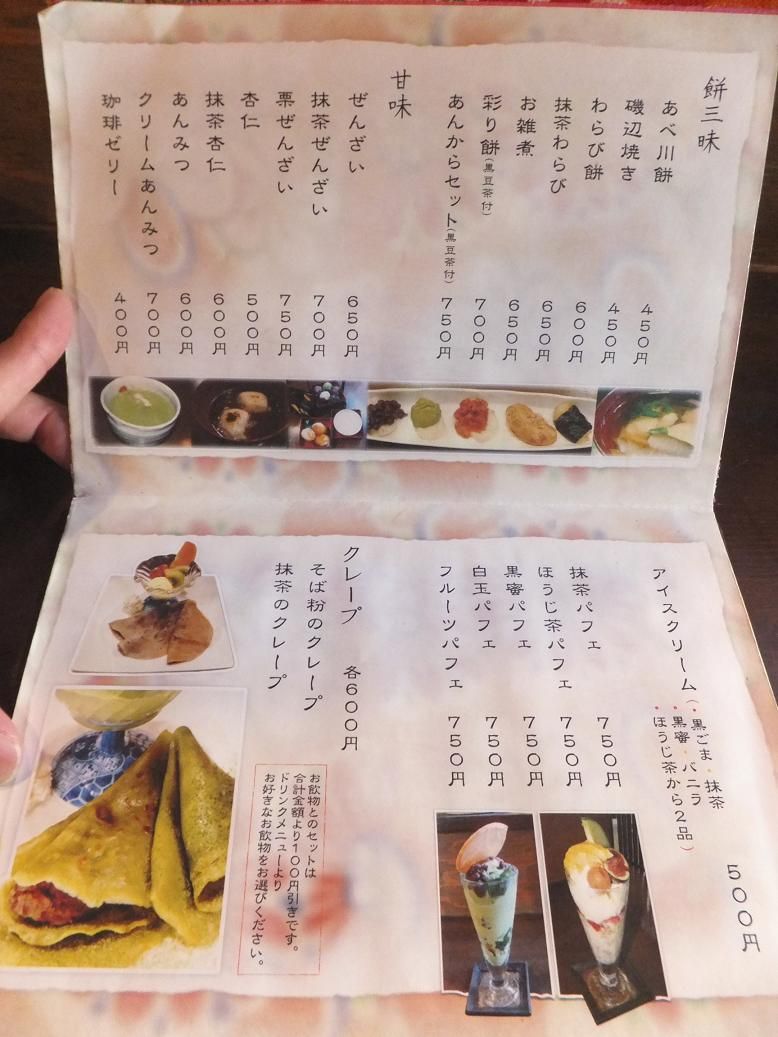 餅三昧
あべ川餅 450円
磯辺焼き 450円
わらび餅 600円
抹茶わらび 650円
お雑煮 650円
彩り餅(黒豆茶付) 700円
あんからセット(黒豆茶付) 750円
甘味
ぜんざい 650円
抹茶ぜんざい 700円
栗ぜんざい 750円
杏仁 500円
抹茶杏仁 600円
あんみつ 600円
クリームあんみつ 700円
珈琲ゼリー 400円
アイスクリーム(・黒ごま・抹茶
・黒蜜・バニラ
・ほうじ茶から2品) 500円
抹茶パフェ 750円
ほうじ茶パフェ 750円
黒蜜パフェ 750円
白玉パフェ 750円
フルーツパフェ 750円
クレープ 各600円
そば粉のクレープ
抹茶のクレープ
お飲物とのセットは
合計金額より100円引きです。
ドリンクメニューより
お好きなお飲物をお選びください。